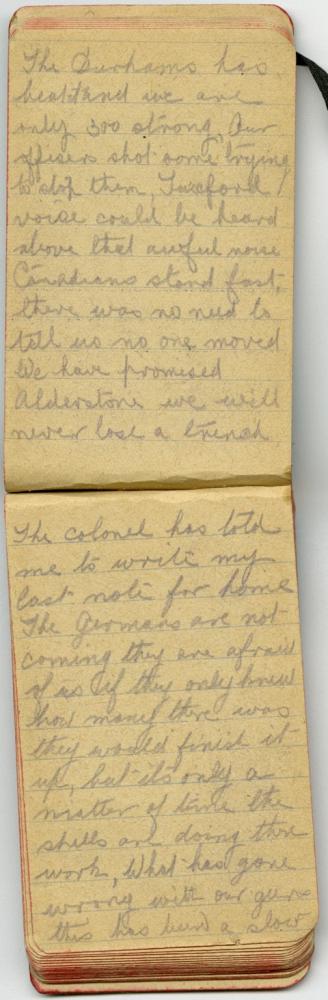 The Durhams has
beat it and we are
only 300 strong, Our
officers shot some trying
to stop them, Tuxford
voise could be heard
above that awful noise
Canadians stand fast,
there was no need to
tell us no one moved
We have promised
Alderstone we will
never lose a trench
The colonel has told
me to write my
last note for home
The Germans are not
coming they are afraid
of us if they only knew
how many there was
they would finish it
up, but its only a
matter of time the
shells are doing there
work, What has gone
wrong with our guns
this has been a slow